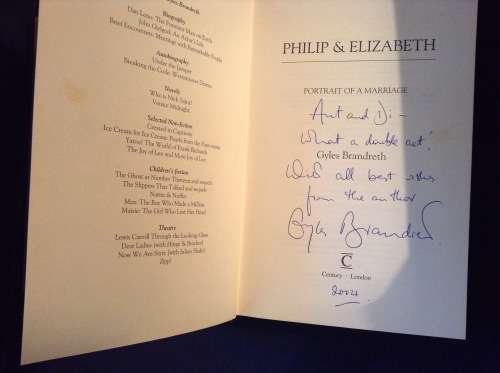 Gyles Brandreth
Biography
Dan Leno: The Funniest Man on Earth
John Gielgud: An Actor's Life
Brief Encounters: Meetings with Remarkable People
Autobiography
Under the Jumper
Breaking the Code: Westminster Diaries
Novels
Who is Nick Saint?
Venice Midnight
Selected Non-fiction
Created in Captivity
Ice Cream for Ice Cream: Pearls from the Pantomime
Yaroo! The World of Frank Richards
The Joy of Lex and More Joy of Lex
Children's fiction
The Ghost at Number Thirteen and sequels
The Slippers That Talked and sequels
Nattie & Nuffin
Max: The Boy Who Made a Million
Maisie: The Girl Who Lost Her Head
Theatre
Lewis Carroll Through the Looking-Glass
Dear Ladies (with Hinge & Bracket)
Now We Are Sixty (with Julian Slade)
Zipp!
PHILIP & ELIZABETH
PORTRAIT OF A MARRIAGE
Ant and Di –
What a double act!
Gyles Brandreth
With all best wishes
from the author
Gyles Brandreth
C
Century · London
2004